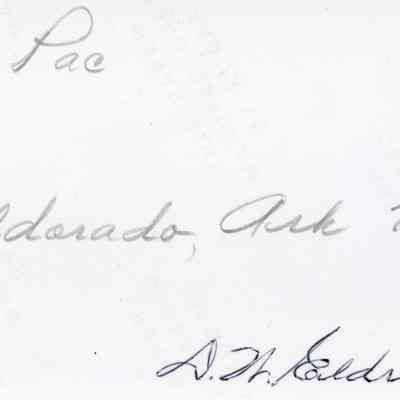 Pac
ldorado, Ark
D. W. Eldr